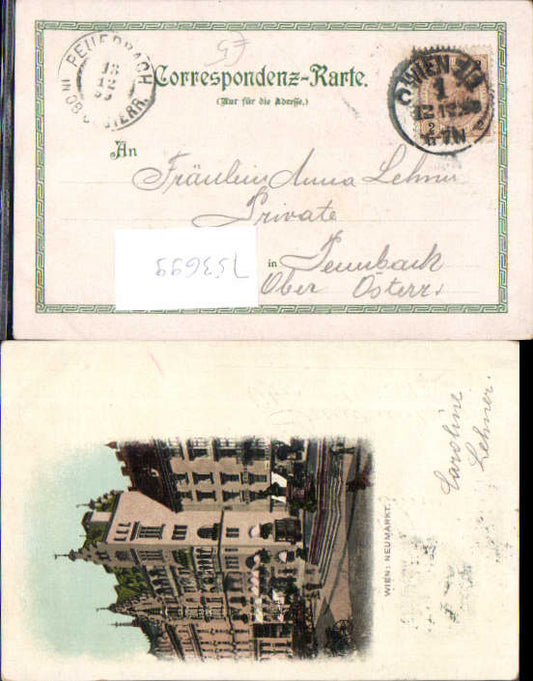 PEUERBACH
IN OB. ÖSTERR.
F5
Correspondenz-Karte.
(Nur für die Adresse.)
WIEN
An
Fräulein Anna Lehner
Private
in Peuerbach
Ober Österr.
753699
Caroline
Lehner.
WIEN: NEUMARKT.